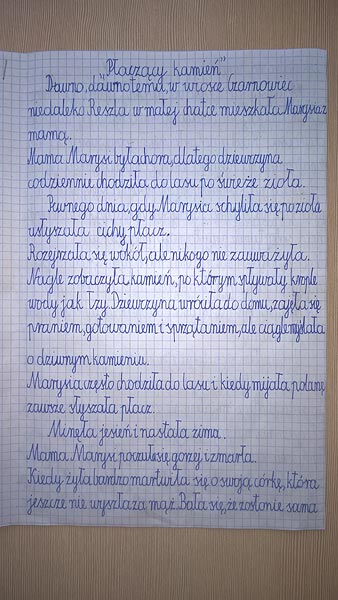 „Płaczący kamień"
Dawno, dawno temu, w wiosce Czarnowiec
niedaleko Reszla w małej chatce mieszkała Marysia z
mamą.
Mama Marysi była chora, dlatego dziewczyna
codziennie chodziła do lasu po świeże zioła.
Pewnego dnia, gdy Marysia schyliła się po zioła
usłyszała cichy płacz.
Rozejrzała się wokół, ale nikogo nie zauważyła.
Nagle zobaczyła kamień, po którym spływały krople
wody jak łzy. Dziewczyna wróciła do domu, zajęła się
praniem, gotowaniem i sprzątaniem, ale ciągle myślała
o dziwnym kamieniu.
Marysia często chodziła do lasu i kiedy mijała polanę
zawsze słyszała płacz.
Minęła jesień i nastała zima.
Mama Marysi poczuła się gorzej i zmarła.
Kiedy żyła bardzo martwiła się o swoją córkę, która
jeszcze nie wyszła za mąż. Bała się, że zostanie sama